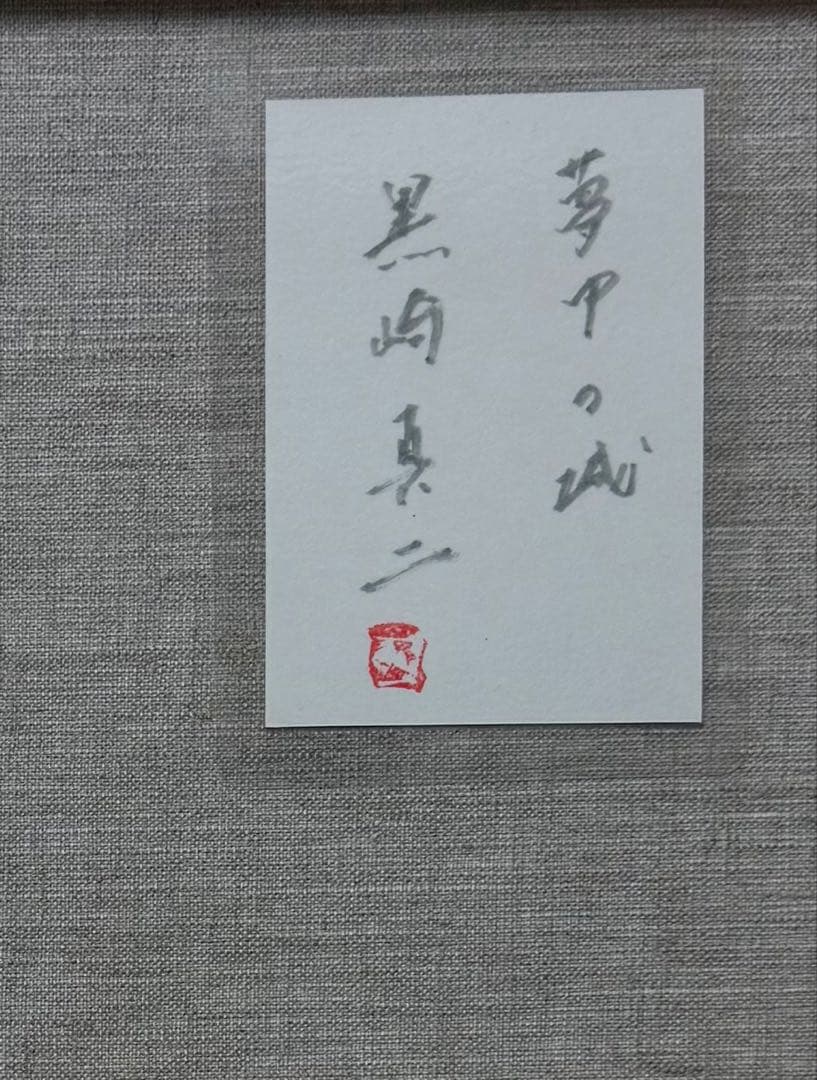 夢甲の城
黒崎真二